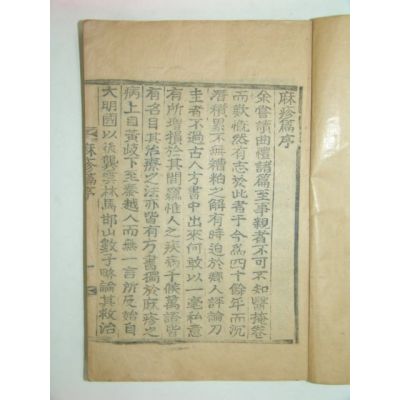 麻疹篇序
余嘗讀曲禮諸篇至事親者不可不知醫掩卷
而歎慨然有志於此者于今爲四十餘年而沉
潛積累不無糟粕之解有時迫於鄕人評論刀
圭者不過古人方書中出來何敢以一毫私意
有所增損於其間竊惟人之疾病千候萬語皆
有名目其治療之法亦皆有方書獨於麻疹之
病上自黃岐下至秦越人而無一言所及始自
大明國以後龔雲林馬邯山數子略論其救治
麻疹篇序
一